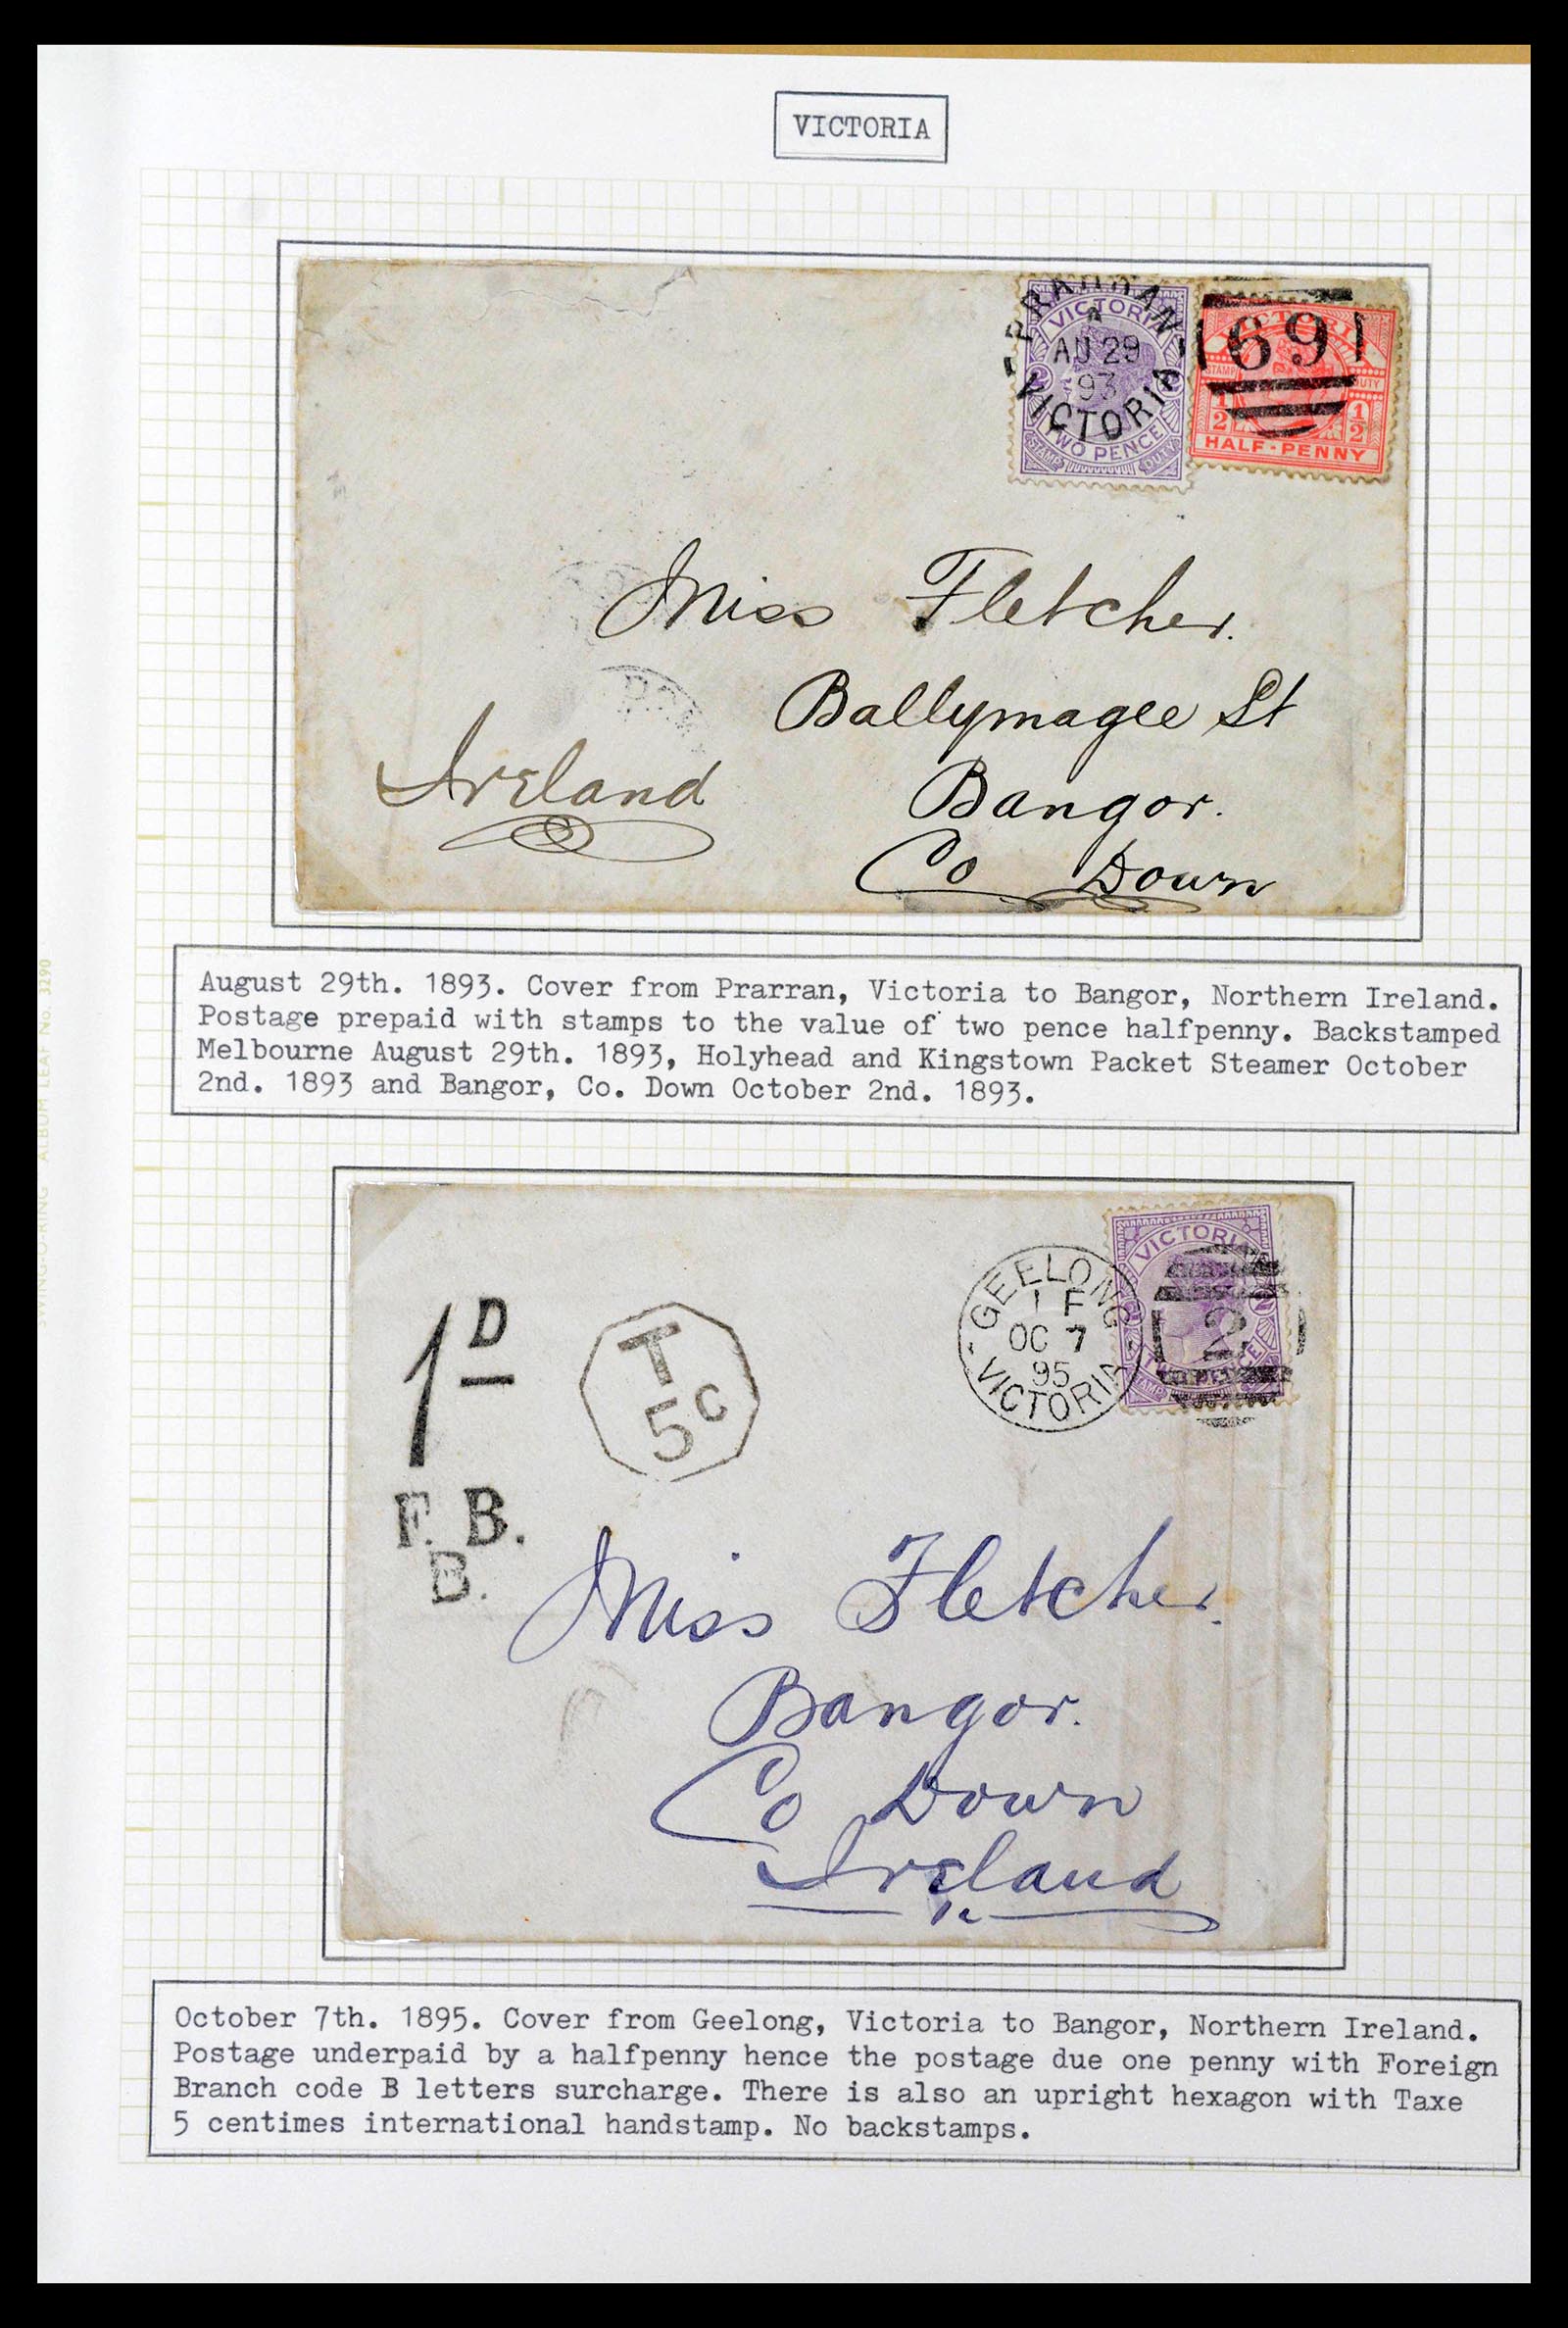 VICTORIA
PRAHRAN
AU 29
93
VICTORIA
VICTORIA
TWO PENCE
STAMP DUTY
691
VICTORIA
STAMP DUTY
1/2 1/2
HALF-PENNY
Miss Fletcher.
Ballymagee St
Ireland
Bangor.
Co Down
August 29th. 1893. Cover from Prarran, Victoria to Bangor, Northern Ireland.
Postage prepaid with stamps to the value of two pence halfpenny. Backstamped
Melbourne August 29th. 1893, Holyhead and Kingstown Packet Steamer October
2nd. 1893 and Bangor, Co. Down October 2nd. 1893.
SWING-O-RING ALBUM LEAF No. 3290
GEELONG
1 F
OC 7
95
VICTORIA
VICTORIA
2
1D
T
5c
F. B.
B.
Miss Fletcher.
Bangor.
Co Down
Ireland
October 7th. 1895. Cover from Geelong, Victoria to Bangor, Northern Ireland.
Postage underpaid by a halfpenny hence the postage due one penny with Foreign
Branch code B letters surcharge. There is also an upright hexagon with Taxe
5 centimes international handstamp. No backstamps.